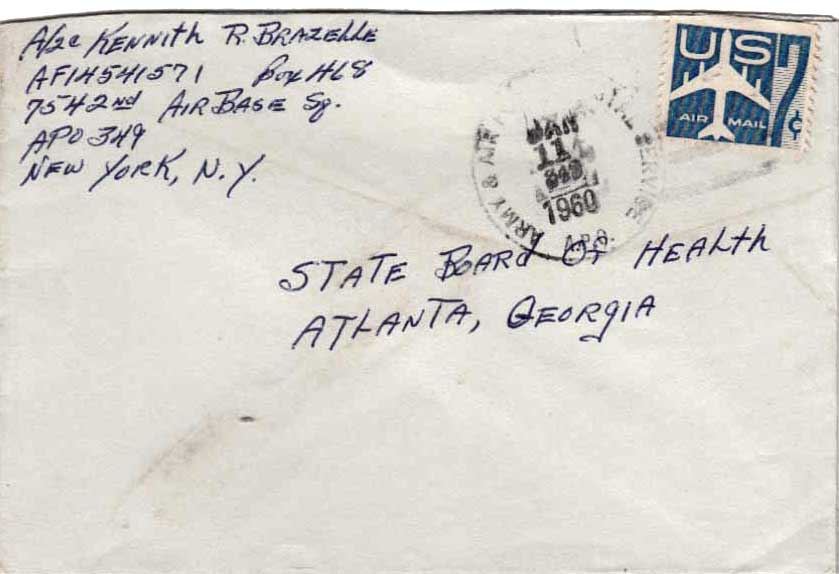 A/2c Kennith R. Brazelle
AF14541571 Box 468
7542nd Air Base Sq.
APO 349
New York, N.Y.
US
7¢
AIR MAIL
ARMY & AIR POSTAL SERVICE
JAN
11
349
1960
A.P.O.
State Board Of Health
Atlanta, Georgia